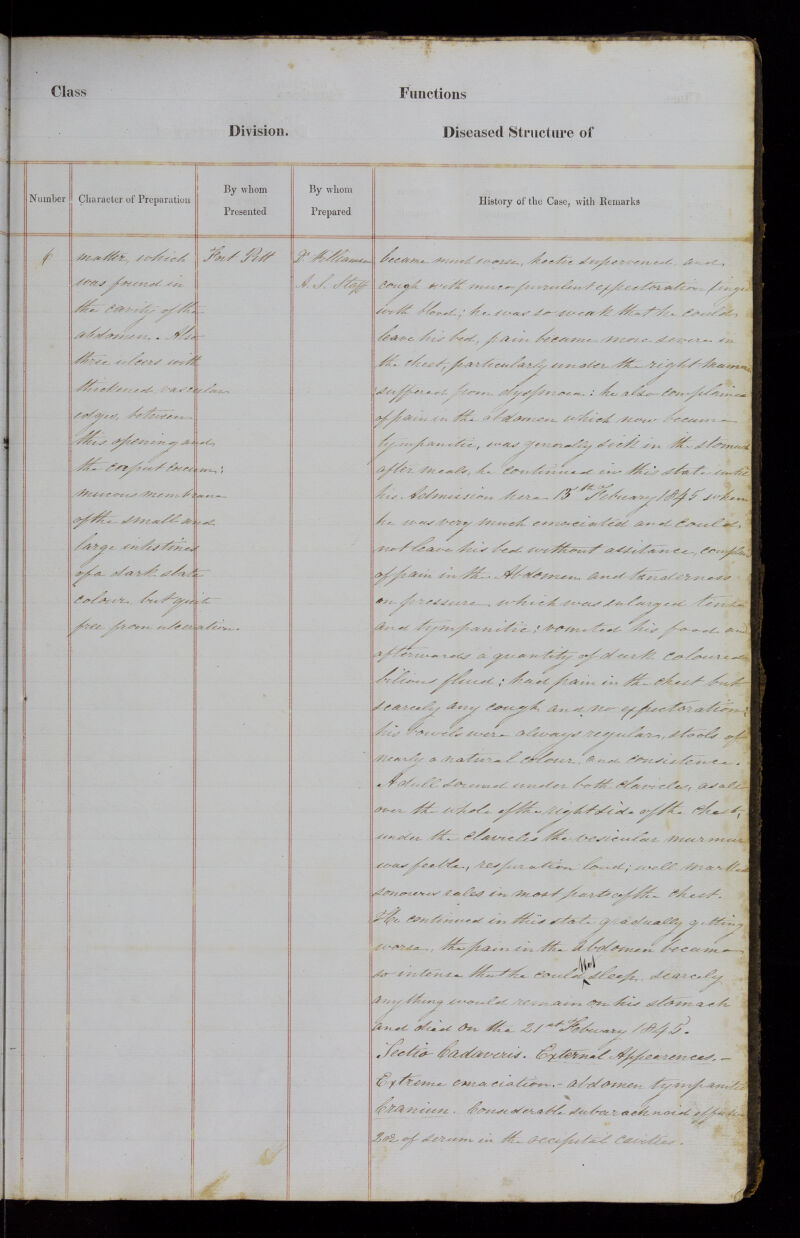 Class
Functions
Division.
Diseased Structure of
Number
Character of Preparation
By whom
Presented
By whom
Prepared
History of the Case, with Remarks
6
matter, which
was found in
the cavity of the
abdomen. Also
three ulcers with
thickened vascular
edges, between
this opening and
the caput coecum;
mucous membrane
of the small and
large intestines
of a dark slate
colour but quite
free from ulceration.
Fort Pitt
Dr Williamson
A. S. Staff
became much worse, hectic supervened, and
cough with muco purulent expectoration tinged
with blood; he was so weak that he could
leave his bed, pain became more severe in
the chest, particularly under the right mamma
suffered from dyspnoea: he also complained
of pain in the abdomen which now became
tympanitic, was generally sick in the stomach
after meals, he continued in this state until
his Admission here 13th Febuary 1845 when
he was very much emaciated and could
not leave his bed without assitance, complain
of pain in the Abdomen and tenderness
on pressure which was enlarged tense
and tympanitic; vomited his food and
afterwards a quantity of dark coloured
bilious fluid; had pain in the chest but
scarcely any cough and no expectoration;
his bowels were always regular, stools of
nearly a natural colour and consistence.
A dull sound under both clavicles, as also
over the whole of the right side of the chest,
under the clavicles the vesicular murmur
was feeble, respiration loud; well marked
sonourus rales in most parts of the chest.
He continued in this state gradually getting
worse, the pain in the abdomen became
so intense that he could Not sleep, scarcely
any thing would remain on his stomach
and died on the 21st Febuary 1845.
Sectio Cadaveris. External Appearences.-
Extreme emaciation.- abdomen tympanitic
Cranium. Considerable subarachnoid effusion
2oz of serum in the occipital cavities.